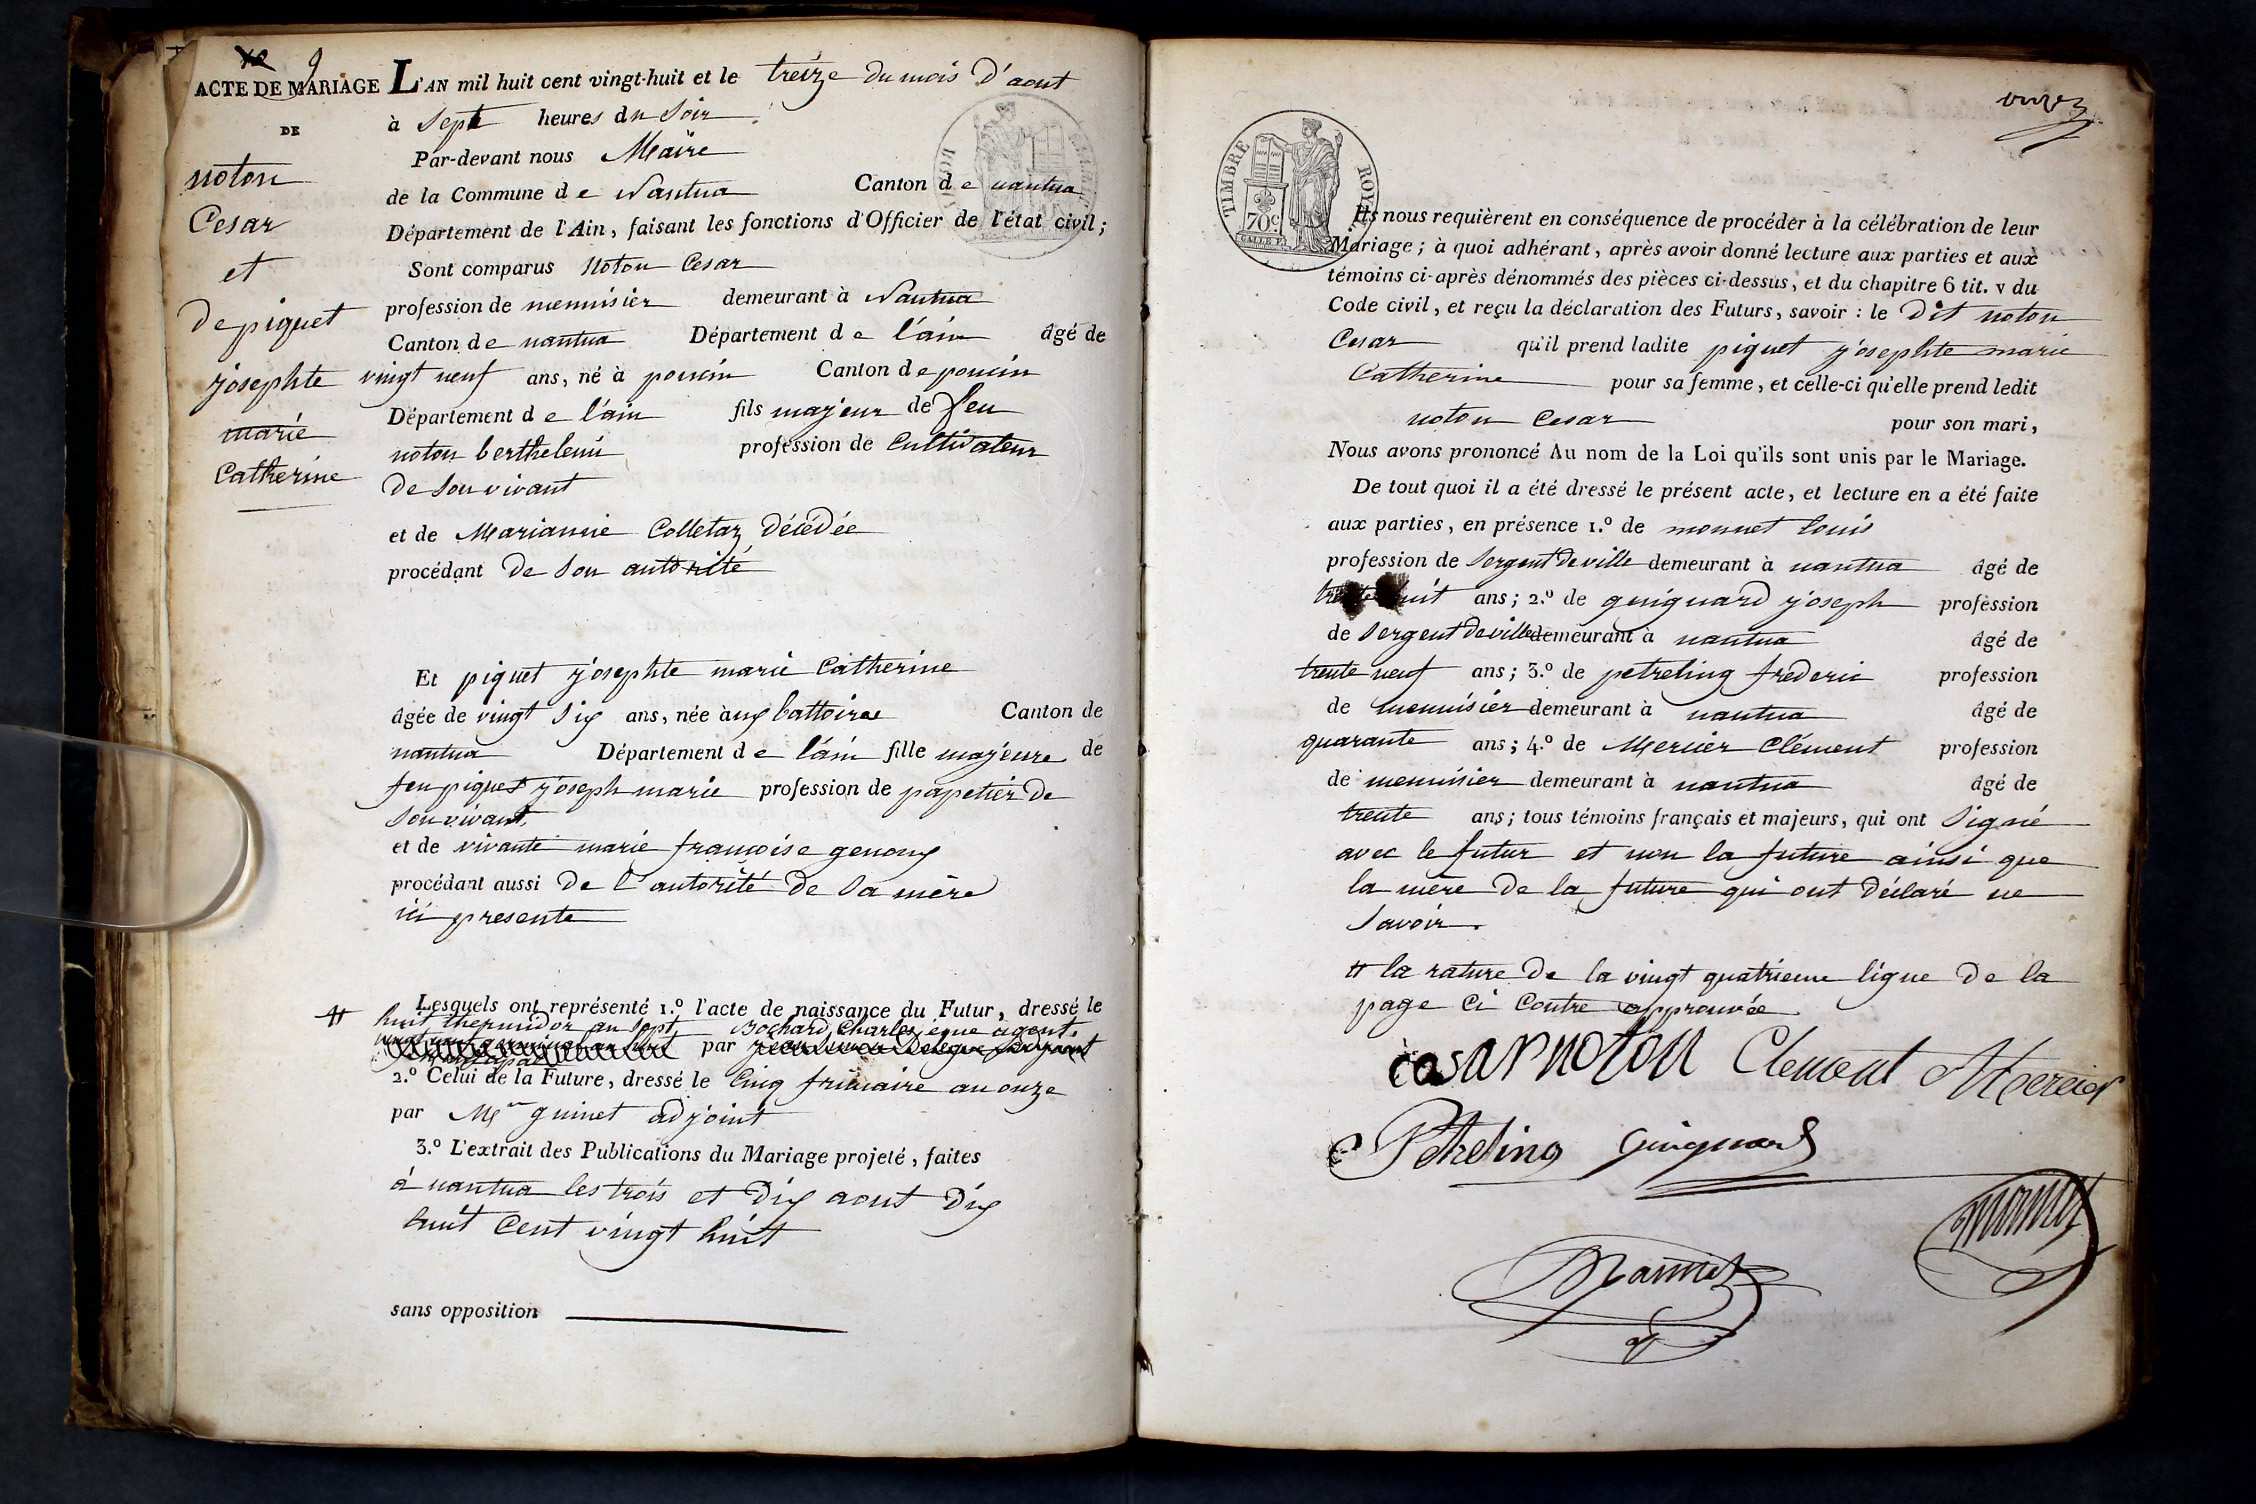 9
ACTE DE MARIAGE
DE
noton
Cesar
et
de piquet
josephte
marie
Catherine
L'AN mil huit cent vingt-huit et le treize du mois d'aout
à Sept heures du Soir
Par-devant nous Maire
de la Commune de Nantua Canton de nantua
Département de l'Ain, faisant les fonctions d'Officier de l'état civil;
Sont comparus Noton Cesar
profession de menuisier demeurant à Nantua
Canton de nantua Département de l'ain âgé de
vingt neuf ans, né à poncin Canton de poncin
Département de l'ain fils majeur de feu
noton berthelemi profession de Cultivateur
de Son vivant
et de Marianne Colletaz Décédée
procédant de Son autorité
Et piquet josephte marie Catherine
âgée de vingt Six ans, née à ux battoires Canton de
nantua Département de l'ain fille majeure de
feu piquet joseph marie profession de papetier de
Son vivant,
et de vivante marie francoise genoux
procédant aussi de l'autorité de Sa mère
ici presente
Lesquels ont représenté 1.º l'acte de naissance du Futur, dressé le
# huit thermidor an Sept, Bochard Charles agent.
par
2.º Celui de la Future, dressé le Cinq frimaire an onze
par guinet adjoint
3.º L'extrait des Publications du Mariage projeté, faites
à nantua les trois et dix aout dix
huit Cent vingt huit
sans opposition
TIMBRE ROYAL
70 c.
Ils nous requièrent en conséquence de procéder à la célébration de leur
Mariage; à quoi adhérant, après avoir donné lecture aux parties et aux
témoins ci-après dénommés des pièces ci-dessus, et du chapitre 6 tit. v du
Code civil, et reçu la déclaration des Futurs, savoir: le dit noton
Cesar qu'il prend ladite piquet josephte marie
Catherine pour sa femme, et celle-ci qu'elle prend ledit
noton Cesar pour son mari,
Nous avons prononcé Au nom de la Loi qu'ils sont unis par le Mariage.
De tout quoi il a été dressé le présent acte, et lecture en a été faite
aux parties, en présence 1.º de monnet louis
profession de Sergent de ville demeurant à nantua âgé de
trente huit ans; 2.º de guignard joseph profession
de Sergent de ville demeurant à nantua âgé de
trente neuf ans; 3.º de petreling frederic profession
de menuisier demeurant à nantua âgé de
quarante ans; 4.º de Mercier Clément profession
de menuisier demeurant à nantua âgé de
trente ans; tous témoins français et majeurs, qui ont Signé
avec le futur et non la future ainsi que
la mère de la future qui ont déclaré ne
Savoir.
# la rature de la vingt quatrieme ligne de la
page Ci Contre approuvée
césar noton Clement Mercier
Petreling Guignard
monnet